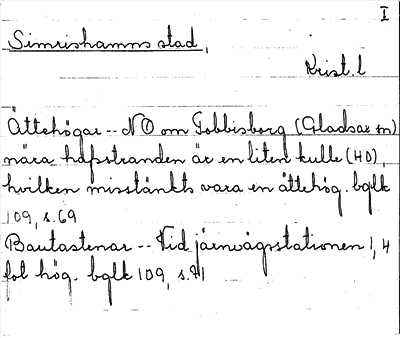 I
Simrishamns stad,
Krist. l
Ättehögar -- NO om Tobbisborg (Gladsax sn)
nära hafsstranden är en liten kulle (HO),
hvilken misstänkts vara en ättehög. bglk
109, s. 69
Bautastenar -- Vid järnvägsstationen 1, 4
fot hög. bglk 109, s. 71